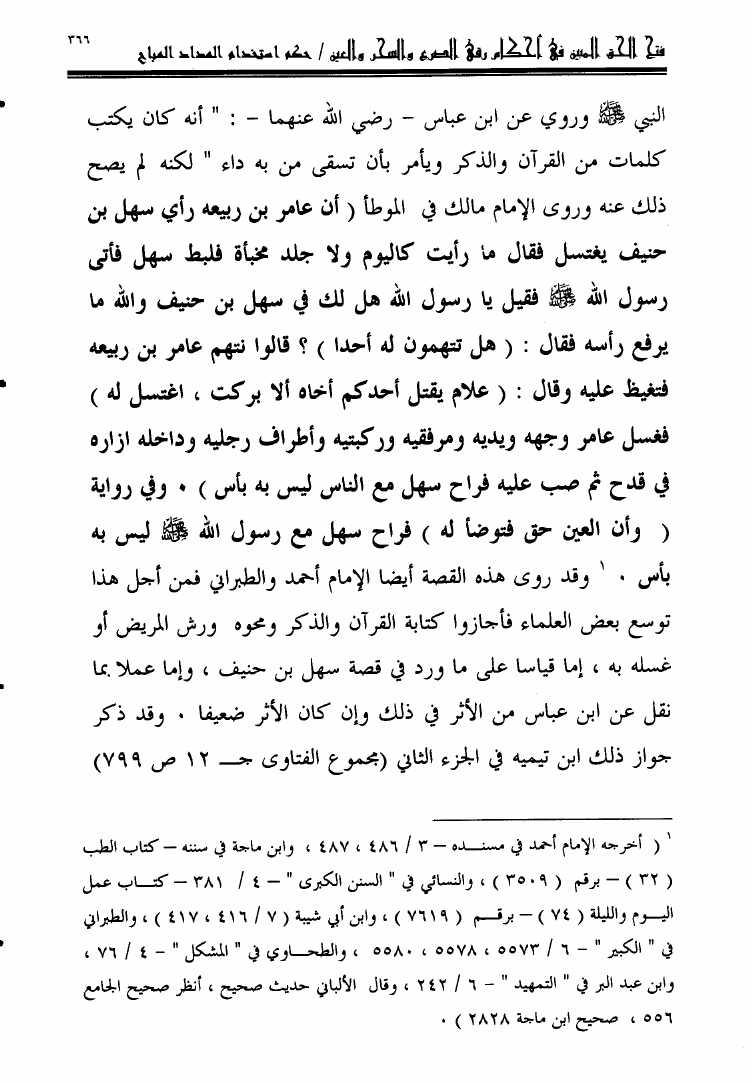 فتح الحق المبين في أحكام رقى الصرع والسحر والعين / حكم استخدام المداد المباح
٣٦٦
النبي ﷺ وروي عن ابن عباس – رضي الله عنهما – : " أنه كان يكتب
كلمات من القرآن والذكر ويأمر بأن تسقى من به داء " لكنه لم يصح
ذلك عنه وروى الإمام مالك في الموطأ ( أن عامر بن ربيعه رأي سهل بن
حنيف يغتسل فقال ما رأيت كاليوم ولا جلد مخبأة فلبط سهل فأتى
رسول الله ﷺ فقيل يا رسول الله هل لك في سهل بن حنيف والله ما
يرفع رأسه فقال : ( هل تتهمون له أحدا ) ؟ قالوا نتهم عامر بن ربيعه
فتغيظ عليه وقال : ( علام يقتل أحدكم أخاه ألا بركت ، اغتسل له )
فغسل عامر وجهه ويديه ومرفقيه وركبتيه وأطراف رجليه وداخله ازاره
في قدح ثم صب عليه فراح سهل مع الناس ليس به بأس ) ٠ وفي رواية
( وأن العين حق فتوضأ له ) فراح سهل مع رسول الله ﷺ ليس به
بأس ٠ ١ وقد روى هذه القصة أيضا الإمام أحمد والطبراني فمن أجل هذا
توسع بعض العلماء فأجازوا كتابة القرآن والذكر ومحوه ورش المريض أو
غسله به ، إما قياسا على ما ورد في قصة سهل بن حنيف ، وإما عملا بما
نقل عن ابن عباس من الأثر في ذلك وإن كان الأثر ضعيفا ٠ وقد ذكر
جواز ذلك ابن تيميه في الجزء الثاني (مجموع الفتاوى جـــ ١٢ ص ٧٩٩)
١ ( أخرجه الإمام أحمد في مسنـــده – ٣ / ٤٨٦ ، ٤٨٧ ، وابن ماجة في سننه – كتاب الطب
( ٣٢ ) – برقم ( ٣٥٠٩ ) ، والنسائي في " السنن الكبرى " – ٤ / ٣٨١ – كتـــاب عمل
اليـــوم والليلة ( ٧٤ ) – برقـــم ( ٧٦١٩ ) ، وابن أبي شيبة ( ٧ / ٤١٦ ، ٤١٧ ) ، والطبراني
في " الكبير " – ٦ / ٥٥٧٣ ، ٥٥٧٨ ، ٥٥٨٠ ، والطحـــاوي في " المشكل " – ٤ / ٧٦ ،
وابن عبد البر في " التمهيد " – ٦ / ٢٤٢ ، وقال الألباني حديث صحيح ، أنظر صحيح الجامع
٥٥٦ ، صحيح ابن ماجة ٢٨٢٨ ) ٠